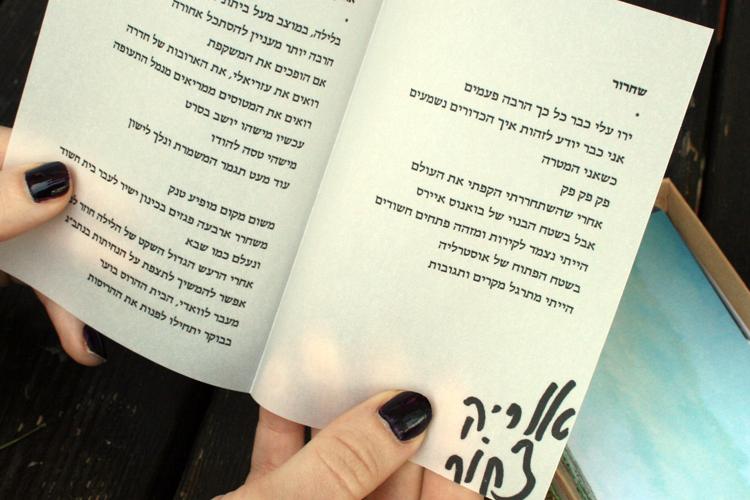 שחרור
•
ירו עלי כבר כל כך הרבה פעמים
אני כבר יודע לזהות איך הכדורים נשמעים
כשאני המטרה
פק פק פק
אחרי שהשתחררתי הקפתי את העולם
אבל בשטח הבנוי של בואנוס איירס
הייתי נצמד לקירות ומזהה פתחים חשודים
בשטח הפתוח של אוסטרליה
הייתי מתרגל מקרים ותגובות
בלילה, במוצב מעל ביתות
הרבה יותר מעניין להסתכל אחורה
אם הופכים את המשקפת
רואים את עזריאלי, את הארובות של חדרה
רואים את המטוסים ממריאים מנמל התעופה
עכשיו מישהו יושב בסרט
מישהי טסה להודו
עוד מעט תגמר המשמרת ונלך לישון
משום מקום מופיע טנק
משחרר ארבעה פגזים בכינון ישיר לעבר בית חשוד
ונעלם כמו שבא
אחרי הרעש הגדול השקט של הלילה חוזר
אפשר להמשיך לתצפת על הנחיתות בנתב״ג
מעבר לוואדי, הבית ההרוס בוער
בבוקר יתחילו לפנות את ההריסות